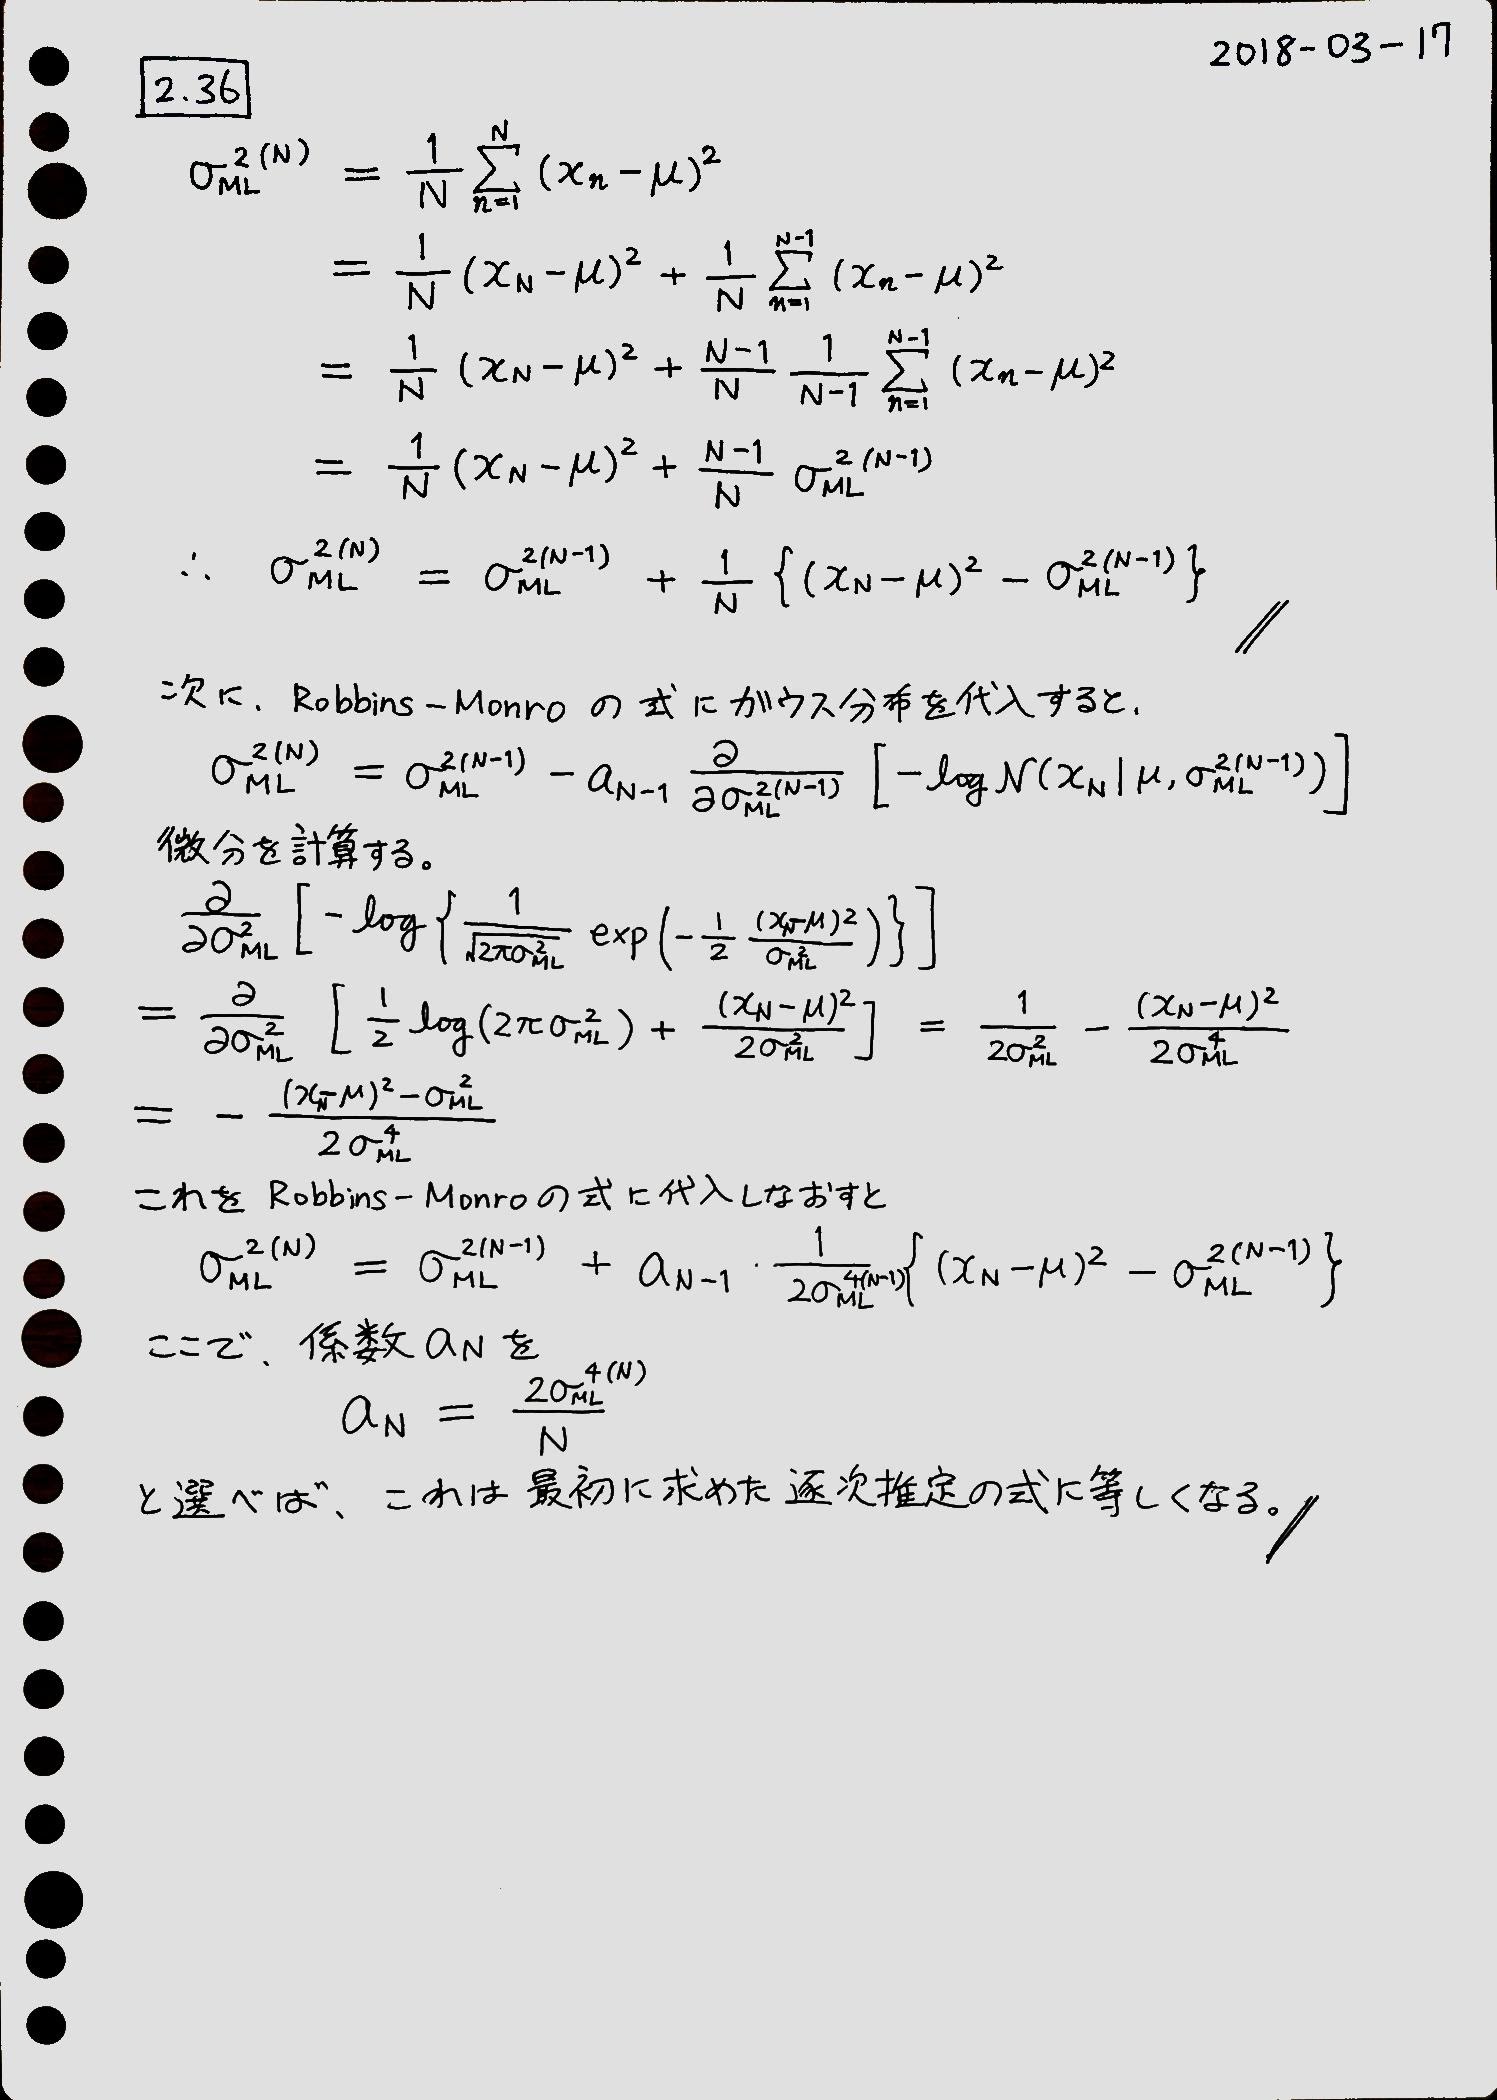 2018-03-17
2.36
σ_ML^2(N) = 1/N Σ_{n=1}^{N} (x_n - μ)^2
= 1/N (x_N - μ)^2 + 1/N Σ_{n=1}^{N-1} (x_n - μ)^2
= 1/N (x_N - μ)^2 + N-1/N 1/N-1 Σ_{n=1}^{N-1} (x_n - μ)^2
= 1/N (x_N - μ)^2 + N-1/N σ_ML^2(N-1)
∴ σ_ML^2(N) = σ_ML^2(N-1) + 1/N {(x_N - μ)^2 - σ_ML^2(N-1)}
次に、Robbins-Monro の式にガウス分布を代入すると、
σ_ML^2(N) = σ_ML^2(N-1) - a_{N-1} ∂/∂σ_ML^2(N-1) [-log N(x_N | μ, σ_ML^2(N-1))]
微分を計算する。
∂/∂σ_ML^2 [-log {1/√(2πσ_ML^2) exp(-1/2 (x_N-μ)^2/σ_ML^2)}]
= ∂/∂σ_ML^2 [1/2 log(2πσ_ML^2) + (x_N-μ)^2/2σ_ML^2] = 1/2σ_ML^2 - (x_N-μ)^2/2σ_ML^4
= - (x_N-μ)^2-σ_ML^2/2σ_ML^4
これを Robbins-Monroの式に代入しなおすと
σ_ML^2(N) = σ_ML^2(N-1) + a_{N-1} · 1/2σ_ML^4(N-1) {(x_N - μ)^2 - σ_ML^2(N-1)}
ここで、係数 a_N を
a_N = 2σ_ML^4(N)/N
と選べば、これは最初に求めた逐次推定の式に等しくなる。